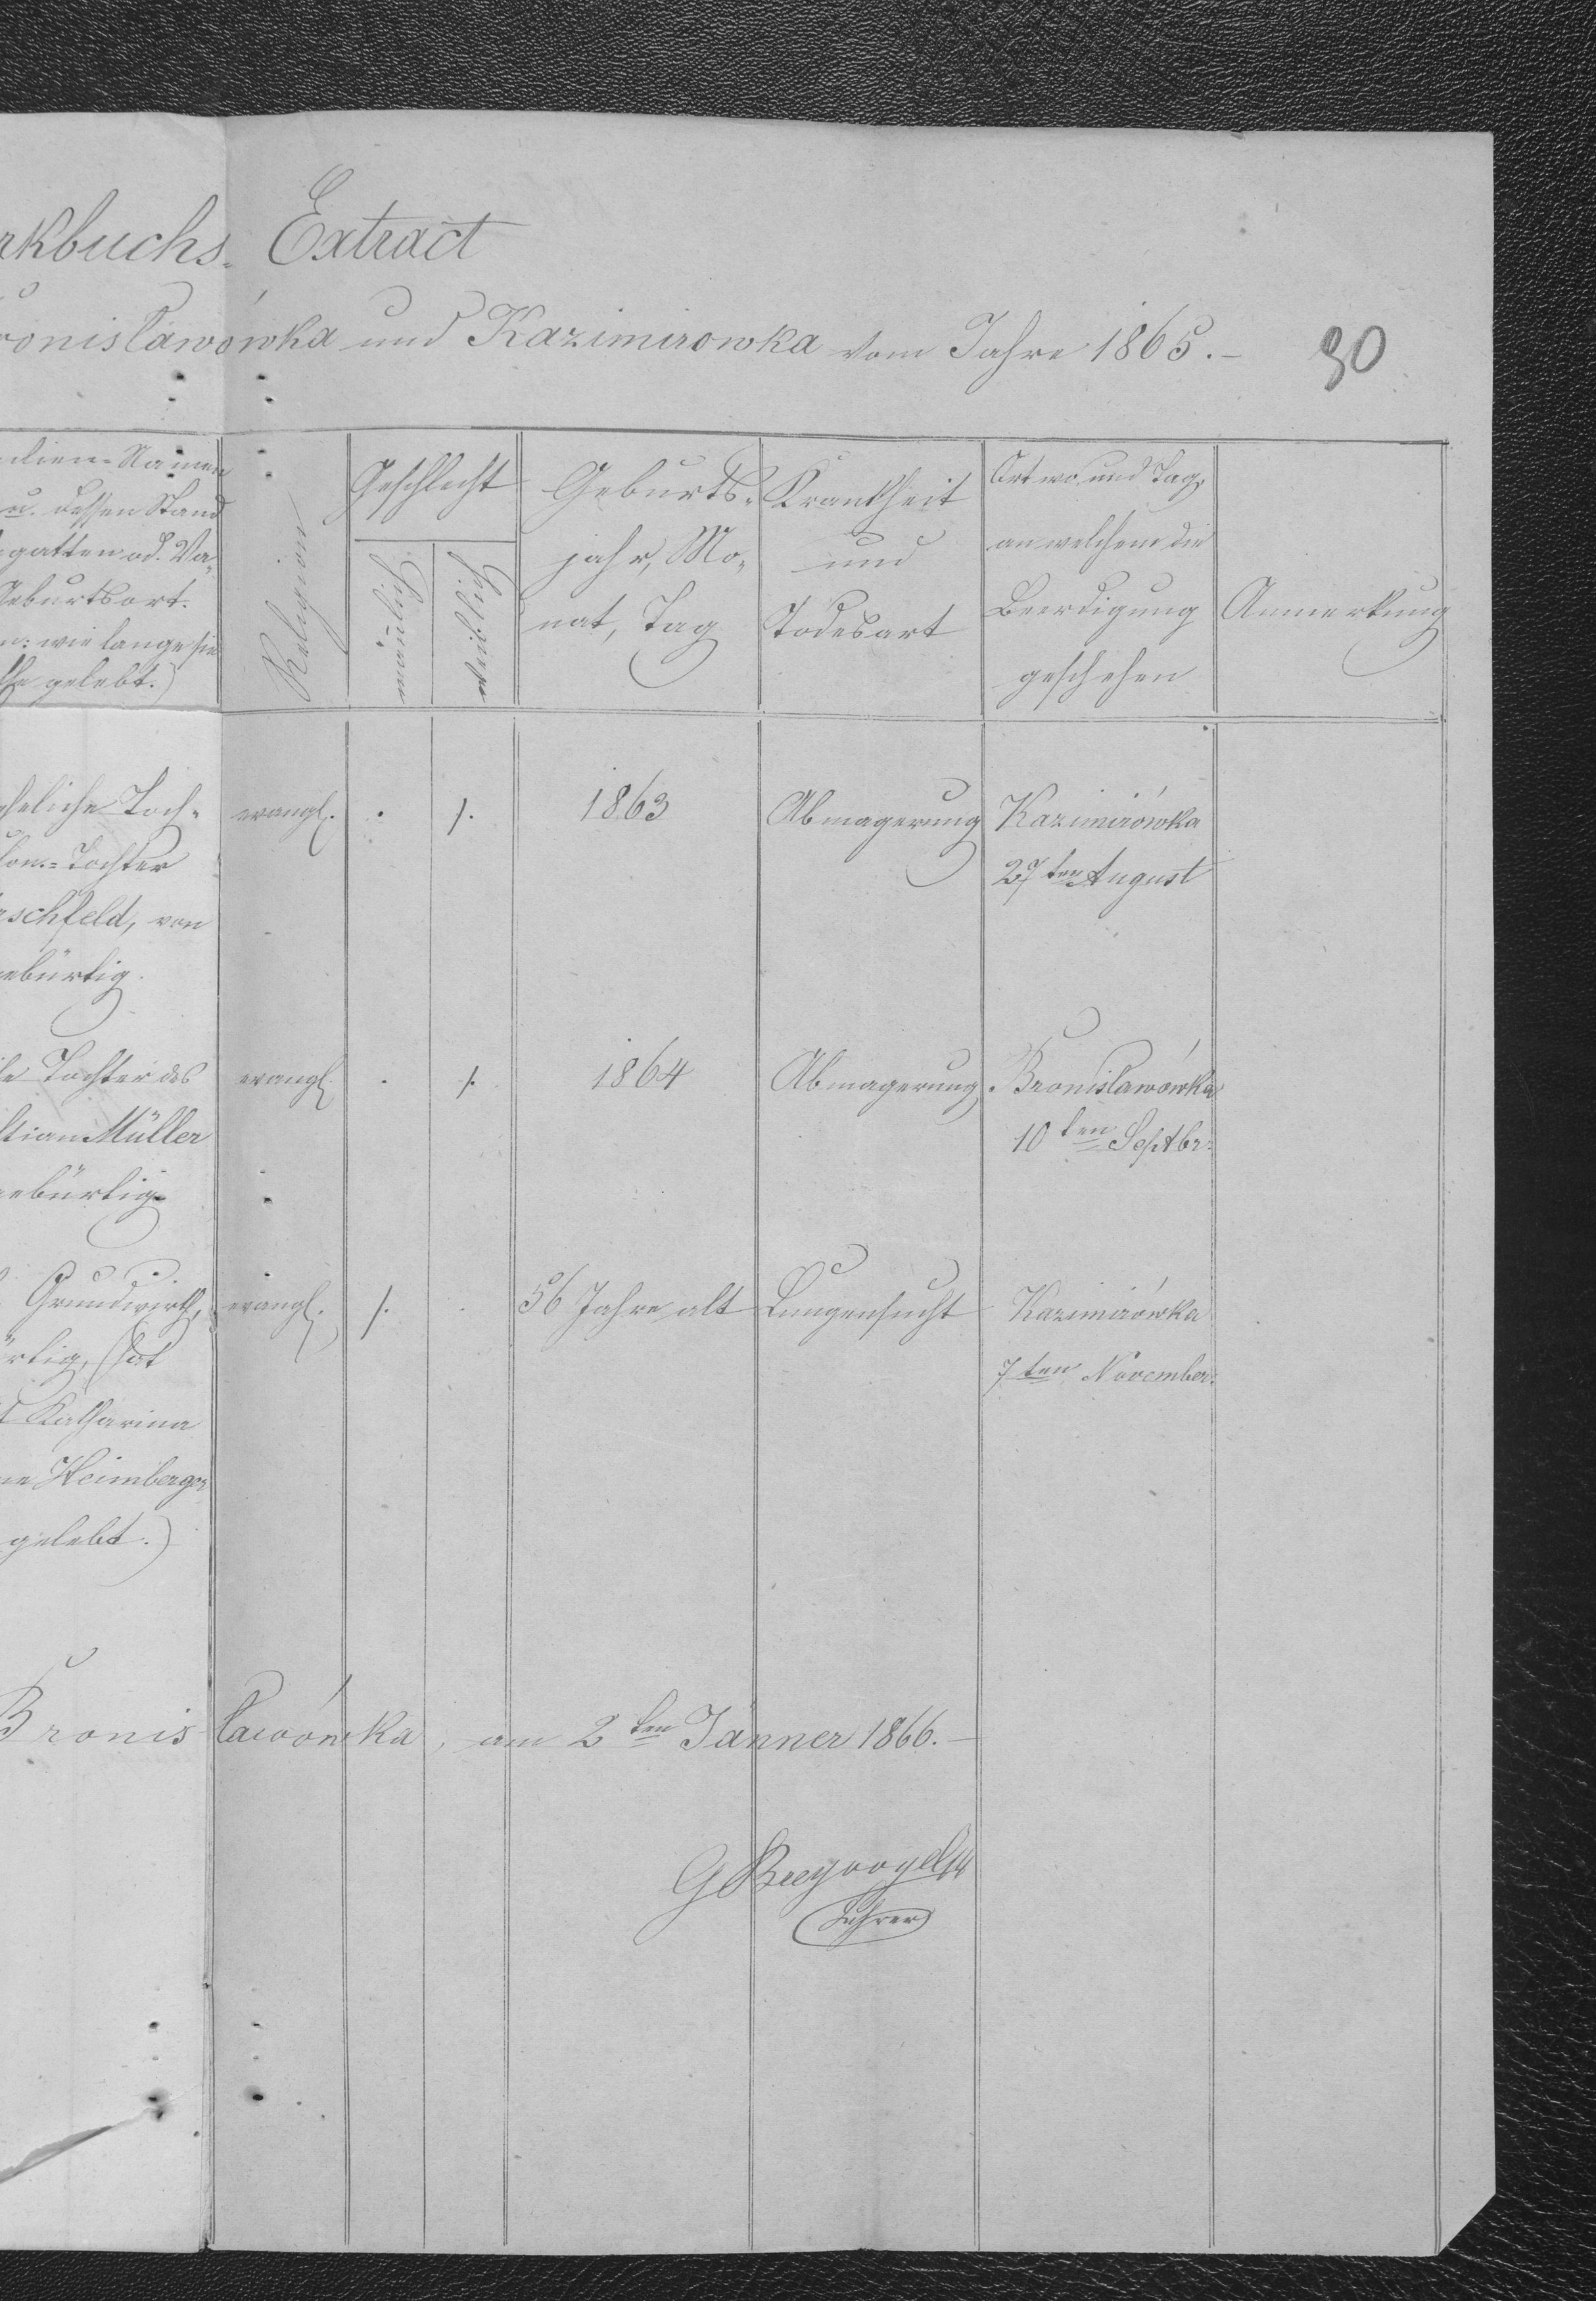 rkbuchs- Extract
ronisławówka und Kazimirowka vom Jahre 1865.-
30
milien-Namen
u. dessen Stand
gatten od. Va-
Geburtsort.
n: wie lange sie
Ehe gelebt.)
Religion
Geschlecht
mänlich
weiblich
Geburts-
jahr, Mo-
nat, Tag
Krankheit
und
Todesart
Ort wo und Tag,
an welchem die
Beerdigung
geschehen
Anmerkung
eheliche Toch-
Tochter
schfeld, von
gebürtig.
evangl. . /. 1863 Abmagerung
Kazimirówka
27ten August
Tochter des
stian Müller
gebürtig
evangl. . /. 1864 Abmagerung
Bronisławówka
10ten Septbr:
Grundwirth,
ürtig, (hat
Katharina
Heimberger
gelebt.)
evangl. /. . 56 Jahre alt Lungensucht
Kazimirówka
7ten November:
Bronisławówka, am 2ten Jänner 1866.-
Lehrer